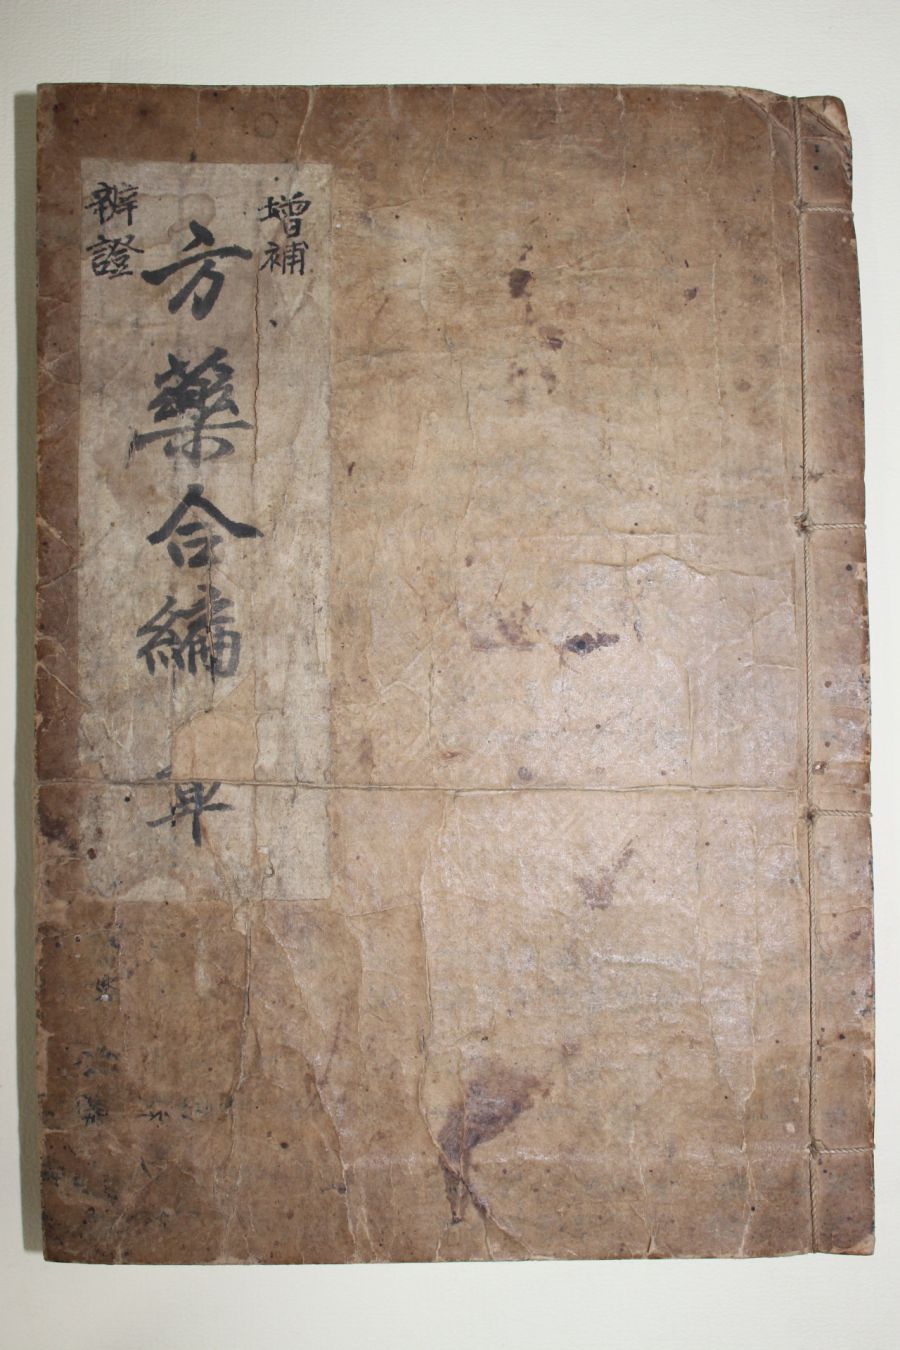 增補
辨證
方藥合編 單